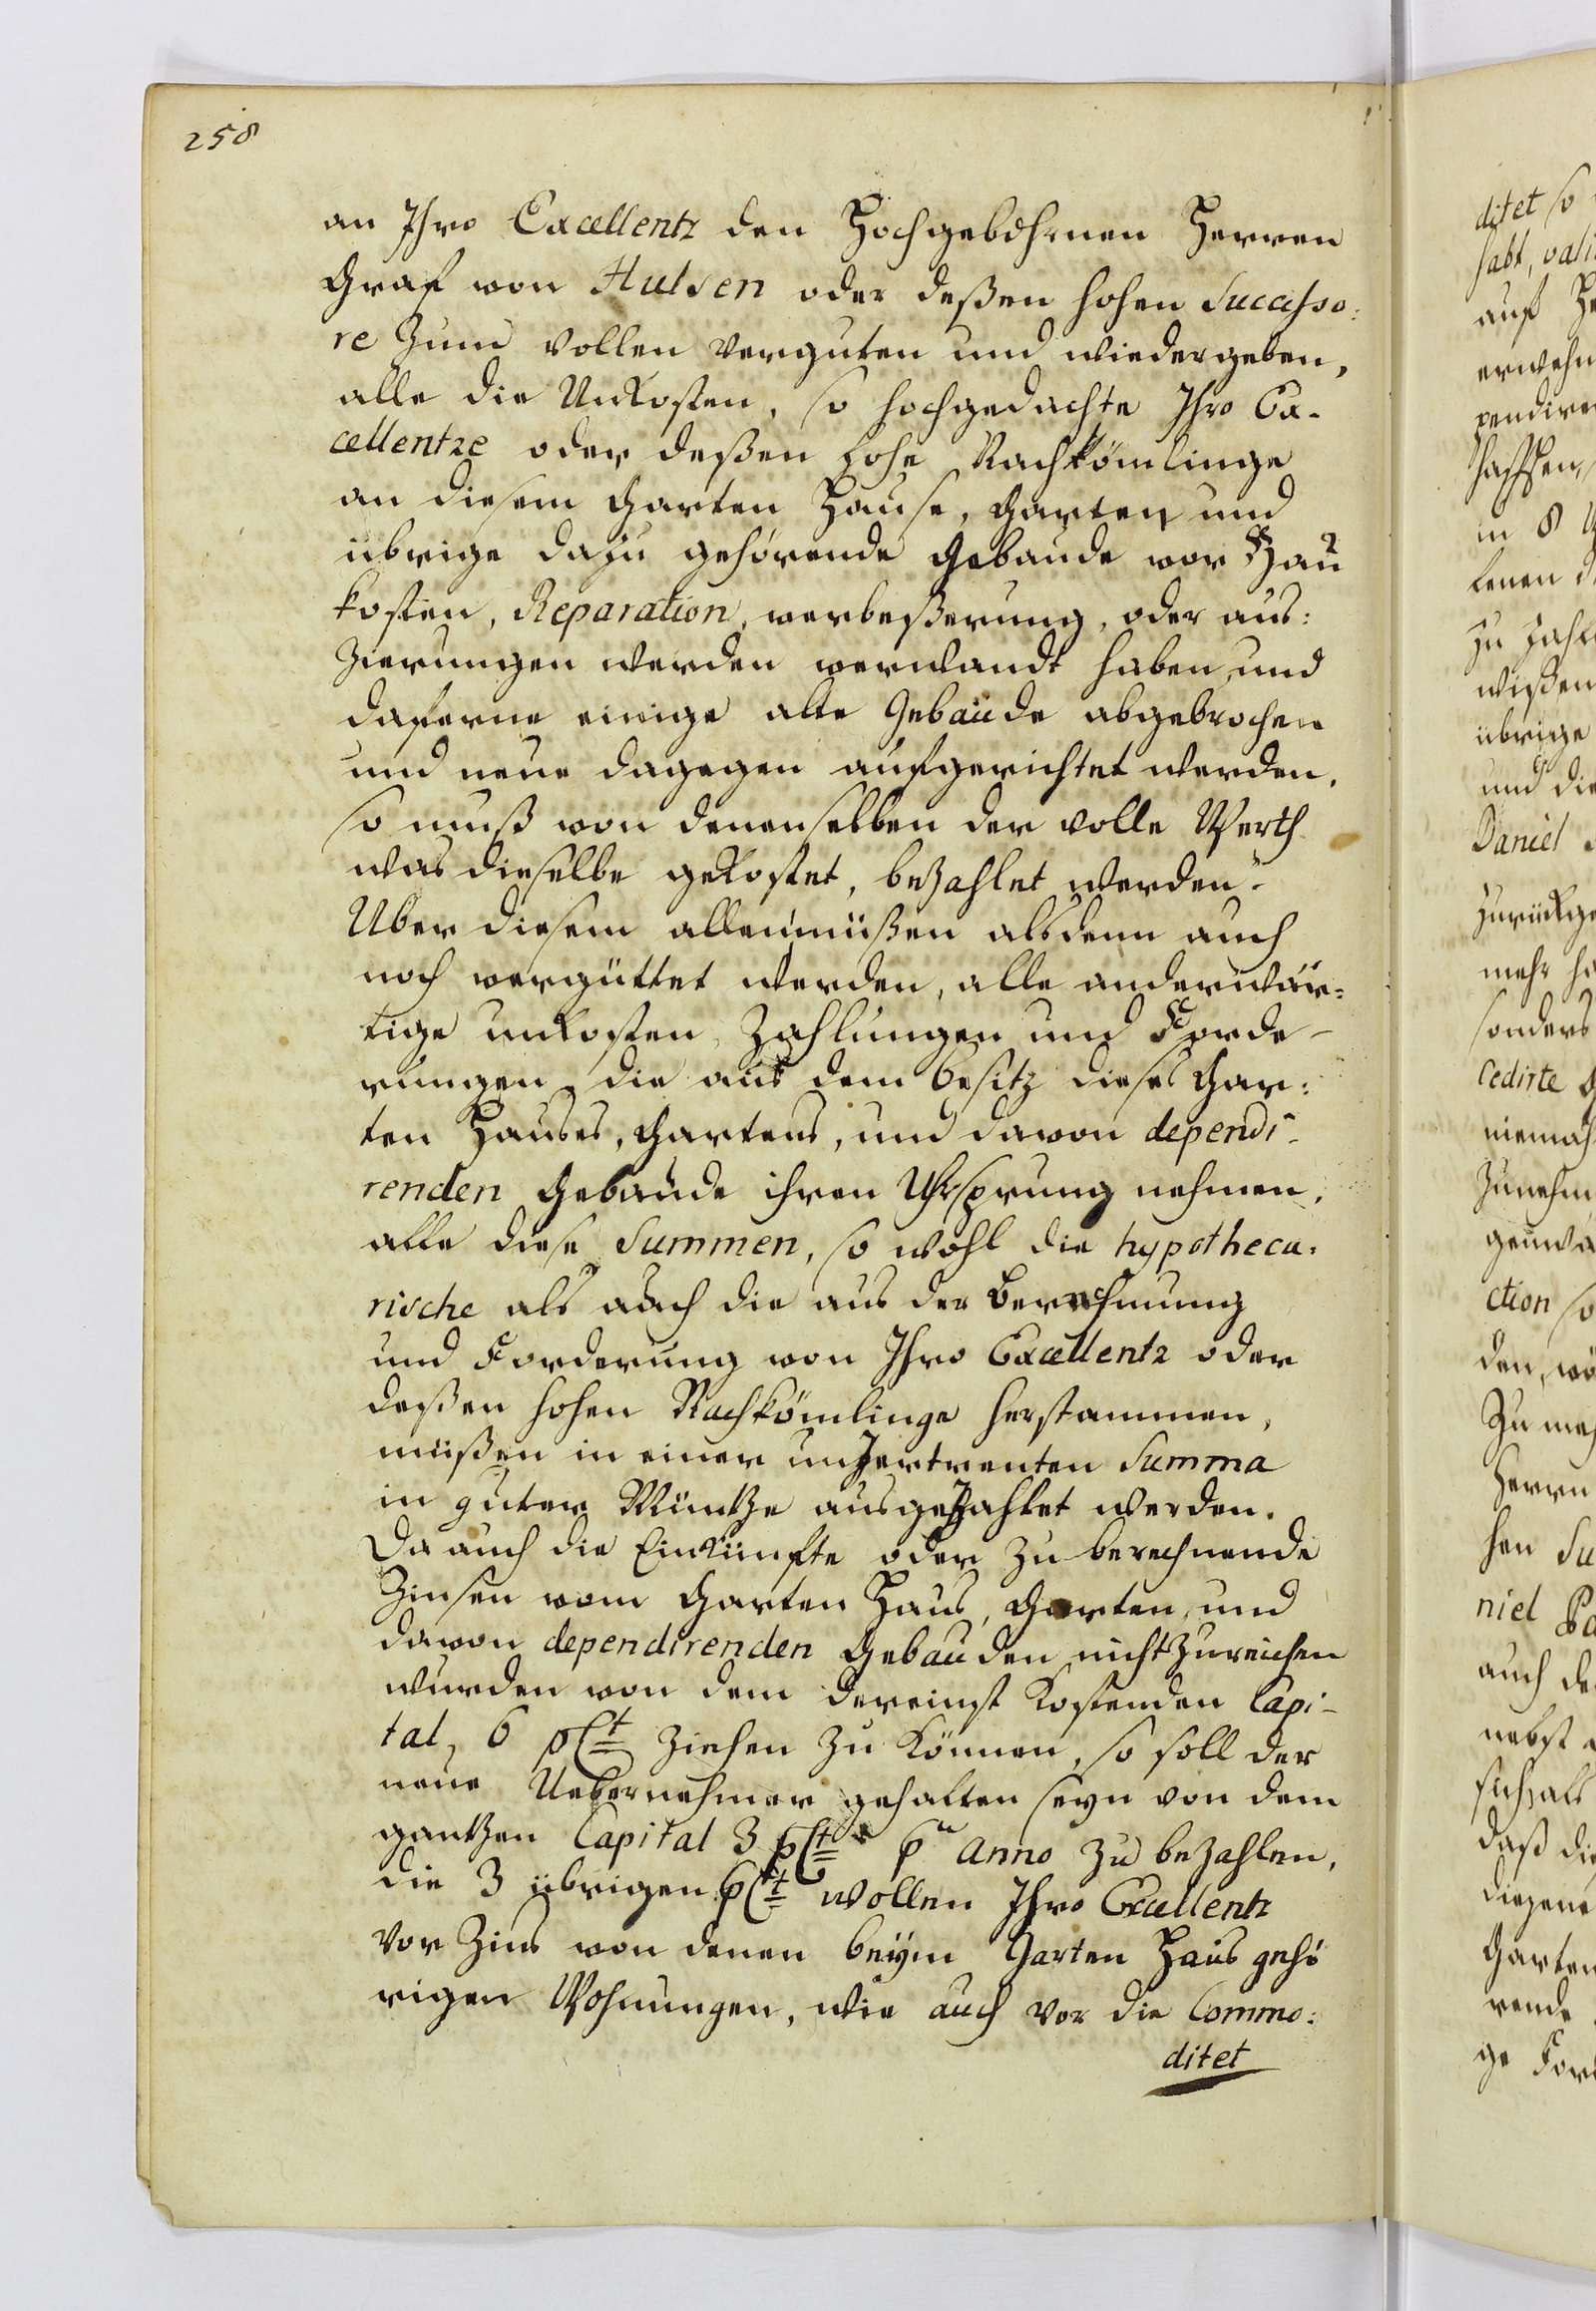 258
an Ihro Excellentz den Hochgebohrnen Herren
Graf von Hulsen oder deßen hohen Successo:
re Zum vollen verguten und wiedergeben,
alle die Unkosten, so hochgedachte Ihro Ex-
cellentze oder deßen hohe Nachkömlinge
an diesem Garten Hause, Garten und
übrige dazu gehörende Gebaude vor Bau
kosten, Reparation, verbeßerung, oder aus:
Zierungen werden verwandt haben, und
daferne einige alte Gebäude abgebrochen
und neue dagegen aufgerichtet werden,
so muß von denenselben der volle Werth
was dieselbe gekostet, beZahlet werden.
Uber diesem allen müßen alsdenn auch
noch vergüttet werden, alle anderwär-
tige unkosten, Zahlungen und Forde-
rungen, die aus dem Besitz dieses Gar:
ten Hauses, Gartens, und davon dependi-
renden Gebaude ihren Uhrsprung nehmen,
alle diese Summen, so wohl die hypotheca:
rische als auch die aus der Berechnung
und Forderung von Ihro Excellentz oder
deßen hohen Nachkömlinge herstammen,
müßen in einer unZertrenten Summa
in guter Müntze ausgeZahlet werden.
Da auch die Einkünfte oder Zu berechnende
Zinsen vom Garten Haus, Garten, und
davon dependirenden Gebauden nicht Zureichen
wurden von dem dereinst kostenden Capi-
tal, 6 pCt Ziehen Zu können, so soll der
neue Uebernehmer gehalten seyn von dem
gantzen Capital 3 pCt pr Anno Zu beZahlen,
die 3 übrigen pCt wollen Ihro Excellentz
vor Zins von denen beym Garten Haus gehö
rigen Wohnungen, wie auch vor die Commo:
ditet
ditet so
habt,
auf
erwehn
pendiren
haften,
in 8
lenen
Zu Zahl
wißen
übrige
und die
Daniel
Zurükge
mehr
sonders
Cedirte
niemah
Zunehm
ction so
den,
Zu
Herrn
hen Su
niel
auch de
nebst
sich als
daß die
diejene
Garten
rende
ge Ford